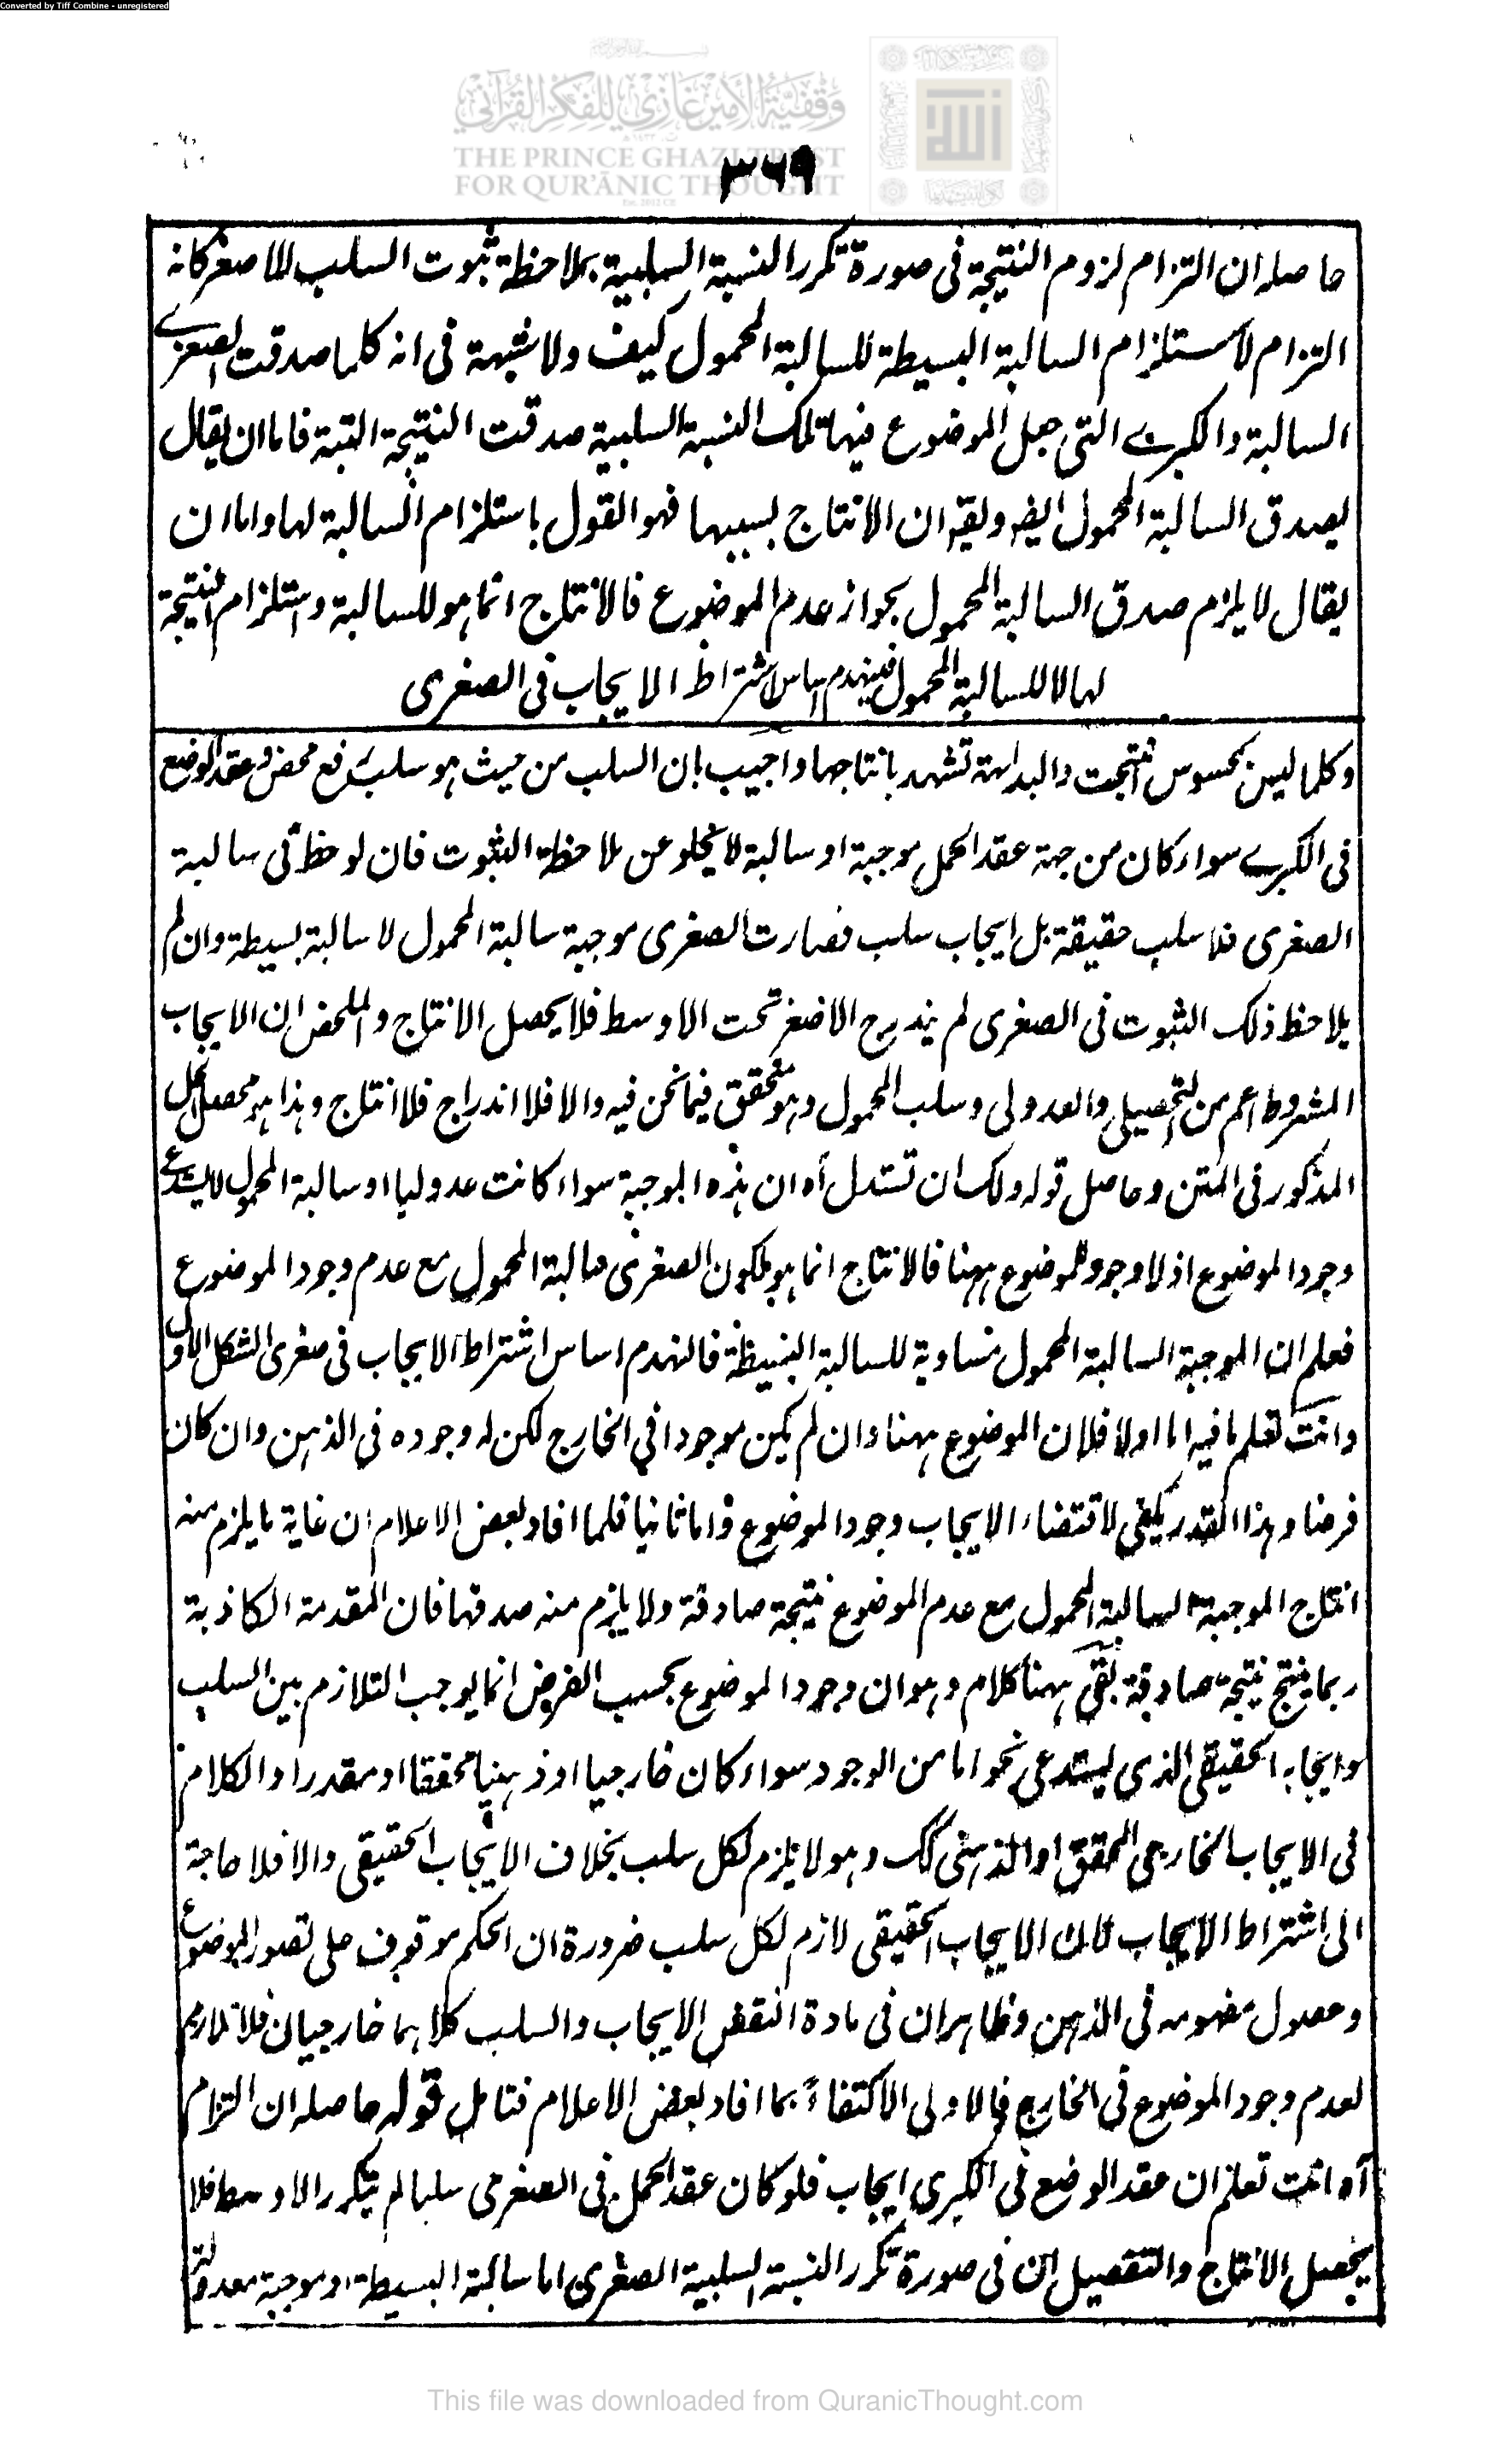 Converted by Tiff Combine - unregistered
وقفية الأمير غازي للفكر القرآني
THE PRINCE GHAZI TRUST
FOR QUR'ĀNIC THOUGHT
٣٦٩
حاصله ان التزام لزوم النتيجة فى صورة تكرر النسبة السلبية بملاحظة ثبوت السلب للاصغر كانه
التزام لاستلزام السالبة البسيطة للسالبة المحمول كيف ولا شبهة فى انه كلما صدقت الصغرى
السالبة والكبرى التى جعل الموضوع فيها تلك النسبة السلبية صدقت النتيجة البتة فاما ان يقال
بصدق السالبة المحمول ايضا ويقر ان الانتاج بسببها فهو القول باستلزام السالبة لها واما ان
يقال لا يلزم صدق السالبة المحمول بجواز عدم الموضوع فالانتاج انما هو للسالبة واستلزام النتيجة
لها لا للسالبة المحمول فينهدم اساس اشتراط الايجاب فى الصغرى
وكلما ليس بمحسوس انتجت والبداهة تشهد بانتاجها واجيب بان السلب من حيث هو سلب رفع محض وعقد الوضع
فى الكبرى سواء كان من جهة عقد الحمل موجبة او سالبة لا يخلو عن ملاحظة الثبوت فان لوحظ فى سالبة
الصغرى فلا سلب حقيقة بل ايجاب سلب فصارت الصغرى موجبة سالبة المحمول لا سالبة بسيطة وان لم
يلاحظ ذلك الثبوت فى الصغرى لم يندرج الاصغر تحت الاوسط فلا يحصل الانتاج والملخص ان الايجاب
المشروط اعم من التحصيلى والعدولى وسلب المحمول وهو متحقق فيما نحن فيه والا فلا اندراج فلا انتاج وهذا هو محصل الحل
المذكور فى المتن وحاصل قوله ولك ان تستدل آه ان هذه الموجبة سواء كانت عدوليا او سالبة المحمول لا يستدعى
وجود الموضوع اذ لا وجود للموضوع ههنا فالانتاج انما هو لكون الصغرى سالبة المحمول مع عدم وجود الموضوع
فعلم ان الموجبة السالبة المحمول مساوية للسالبة البسيطة فانهدم اساس اشتراط الايجاب فى صغرى الشكل الاول
وانت تعلم ما فيه اما اولا فلان الموضوع ههنا وان لم يكن موجودا فى الخارج لكن له وجوده فى الذهن وان كان
فرضا وهذا القدر يكفى لاقتضاء الايجاب وجود الموضوع واما ثانيا فلما افاد بعض الاعلام ان غاية ما يلزم منه
انتاج الموجبة السالبة المحمول مع عدم الموضوع نتيجة صادقة ولا يلزم منه صدقها فان المقدمة الكاذبة
ربما ينتج نتيجة صادقة بقى ههنا كلام وهو ان وجود الموضوع بحسب الفرض انما يوجب التلازم بين السلب
وايجابه الحقيقى الذى يستدعى نحوا ما من الوجود سواء كان خارجيا او ذهنيا محققا او مقدرا والكلام
فى الايجاب الخارجى المحقق او الذهنى كك وهو لا يلزم لكل سلب بخلاف الايجاب الحقيقى والا فلا حاجة
الى اشتراط الايجاب لان الايجاب الحقيقى لازم لكل سلب ضرورة ان الحكم موقوف على تصور الموضوع
وحصول مفهومه فى الذهن وظاهر ان فى مادة النقض الايجاب والسلب كلاهما خارجيان فلا تلازم
لعدم وجود الموضوع فى الخارج فالاولى الاكتفاء بما افاد بعض الاعلام فتامل قوله حاصله ان التزام
آه انت تعلم ان عقد الوضع فى الكبرى ايجاب فلو كان عقد الحمل فى الصغرى سلبا لم يتكرر الاوسط فلا
يحصل الانتاج والتفصيل ان فى صورة تكرر النسبة السلبية الصغرى اما سالبة البسيطة او موجبة معدولة
This file was downloaded from QuranicThought.com